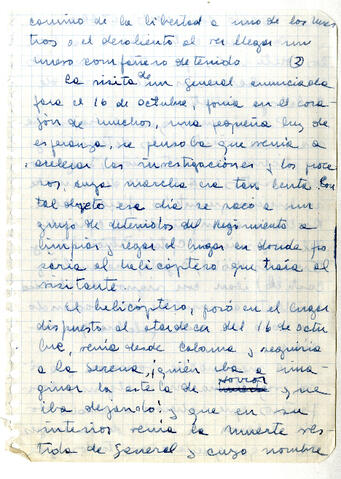 camino de la libertad a uno de los nues
tros o el desaliento al ver llegar un
nuevo compañero detenido (2)
La visita de un general anunciada
para el 16 de octubre, ponía en el cora-
zón de muchos, una pequeña luz de
esperanza, se pensaba que venía a
acelerar las investigaciones y los proce
sos, cuya marcha era tan lenta. Con
tal objeto ese día se sacó a un
grupo de detenidos del regimiento a
limpiar y regar el lugar en donde po
saría el helicóptero que traía al
visitante.
El helicóptero, posó en el lugar
dispuesto al atardecer del 16 de octu
bre, venía desde Calama y seguiría
a la Serena, ¡quién iba a ima-
ginar la estela de horror que
iba dejando! y que en su
interior venía la muerte ves
tida de general y cuyo nombre